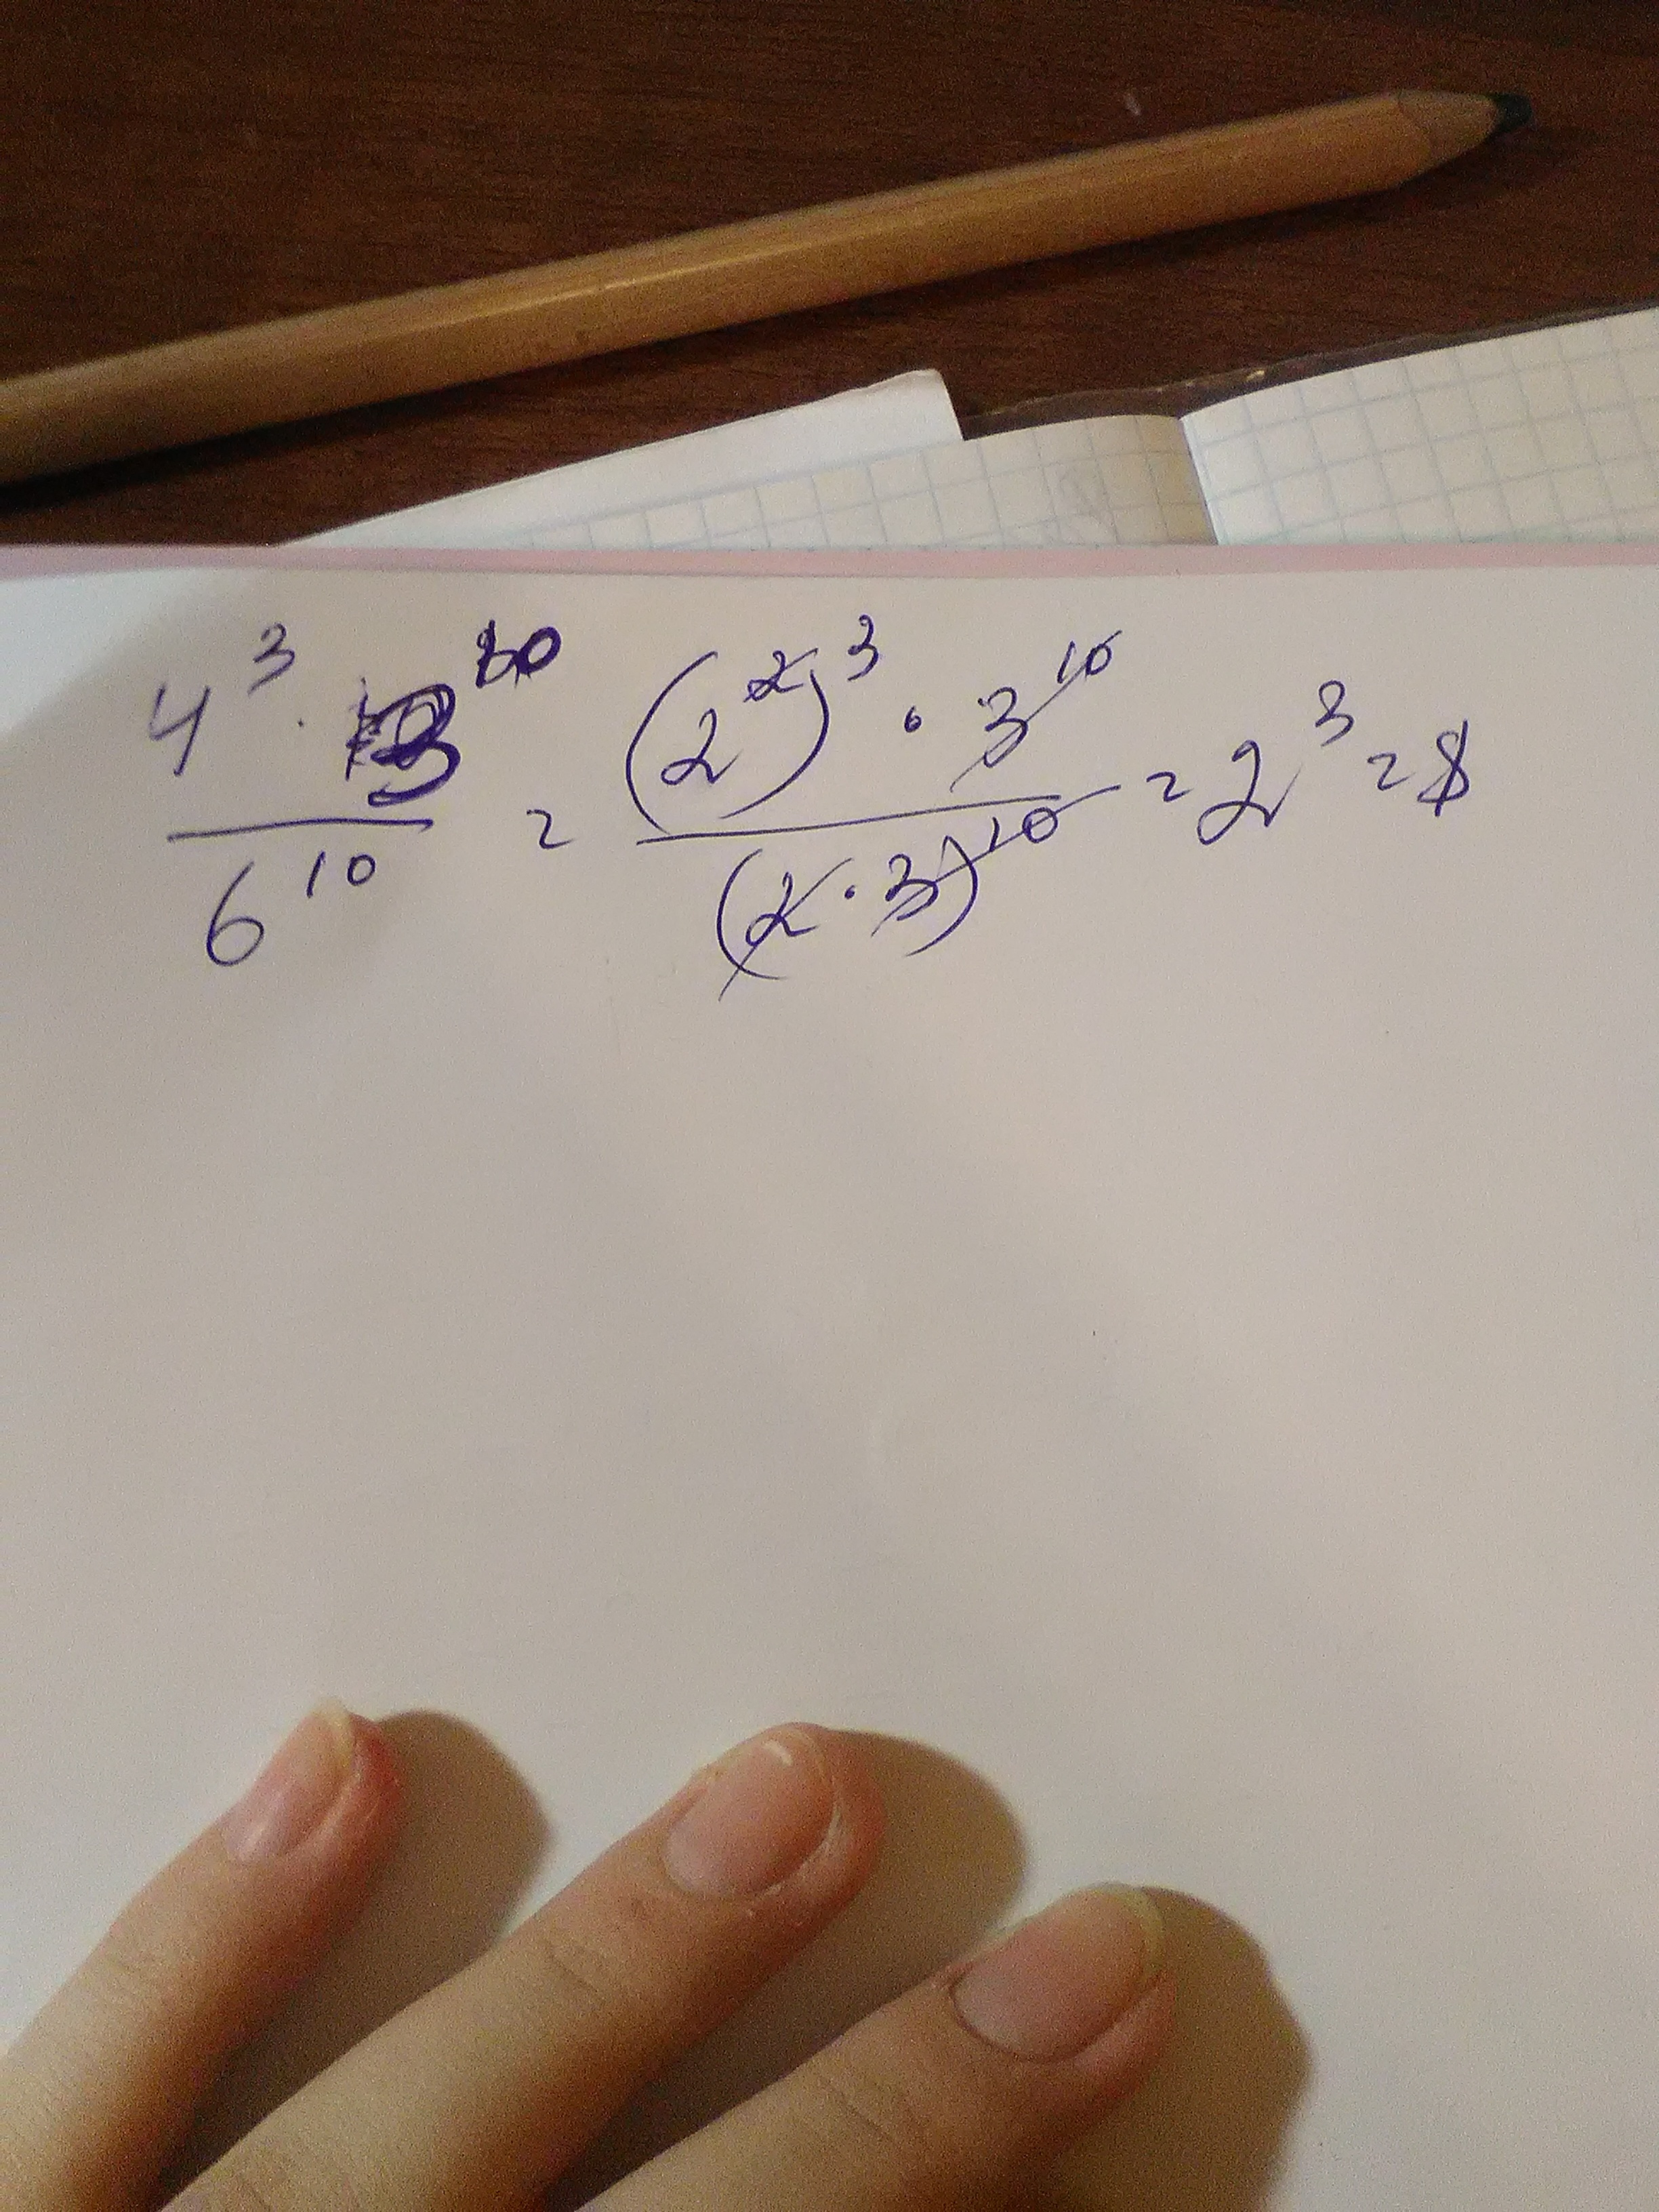 4³ · 3¹⁰ / 6¹⁰ = (2²)³ · 3¹⁰ / (2 · 3)¹⁰ = 2³ = 8